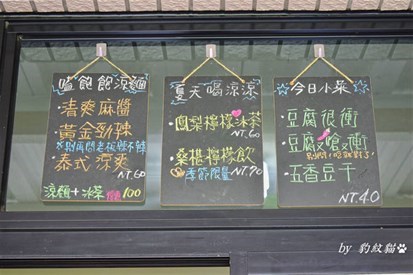 嗑飽飽涼麵
·清爽麻醬
·黃金勁辣
※別再問老闆辣不辣
·泰式涼爽
NT.60
涼麵+冰茶 100
夏天喝涼涼
·鳳梨檸檬冰茶
NT.60
·桑椹檸檬飲
季節限量 NT.70
☆今日小菜☆
·豆腐很衝
·豆腐又嗆又衝
·五香豆干
NT.40
by 豹紋貓